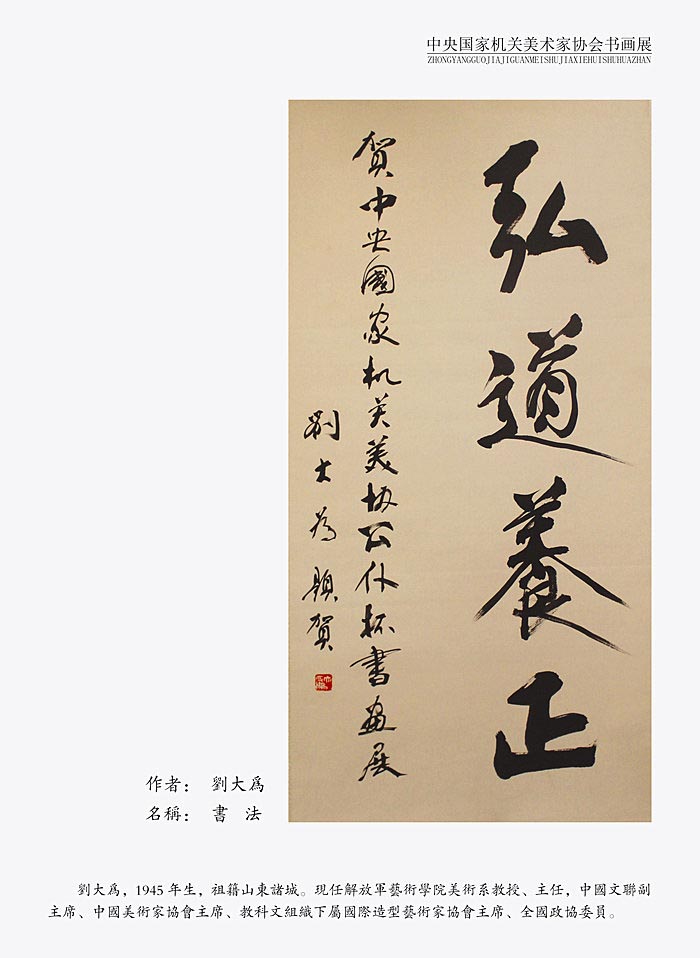 中央国家机关美术家协会书画展
ZHONGYANGGUOJIAJIGUANMEISHUJIAXIEHUISHUHUAZHAN
弘道養正
贺中央國家机关美协公仆杯书画展
劉大为题贺
作者：劉大爲
名稱：書 法
劉大爲，1945 年生，祖籍山東諸城。現任解放軍藝術學院美術系教授、主任，中國文聯副
主席、中國美術家協會主席、教科文組織下屬國際造型藝術家協會主席、全國政協委員。